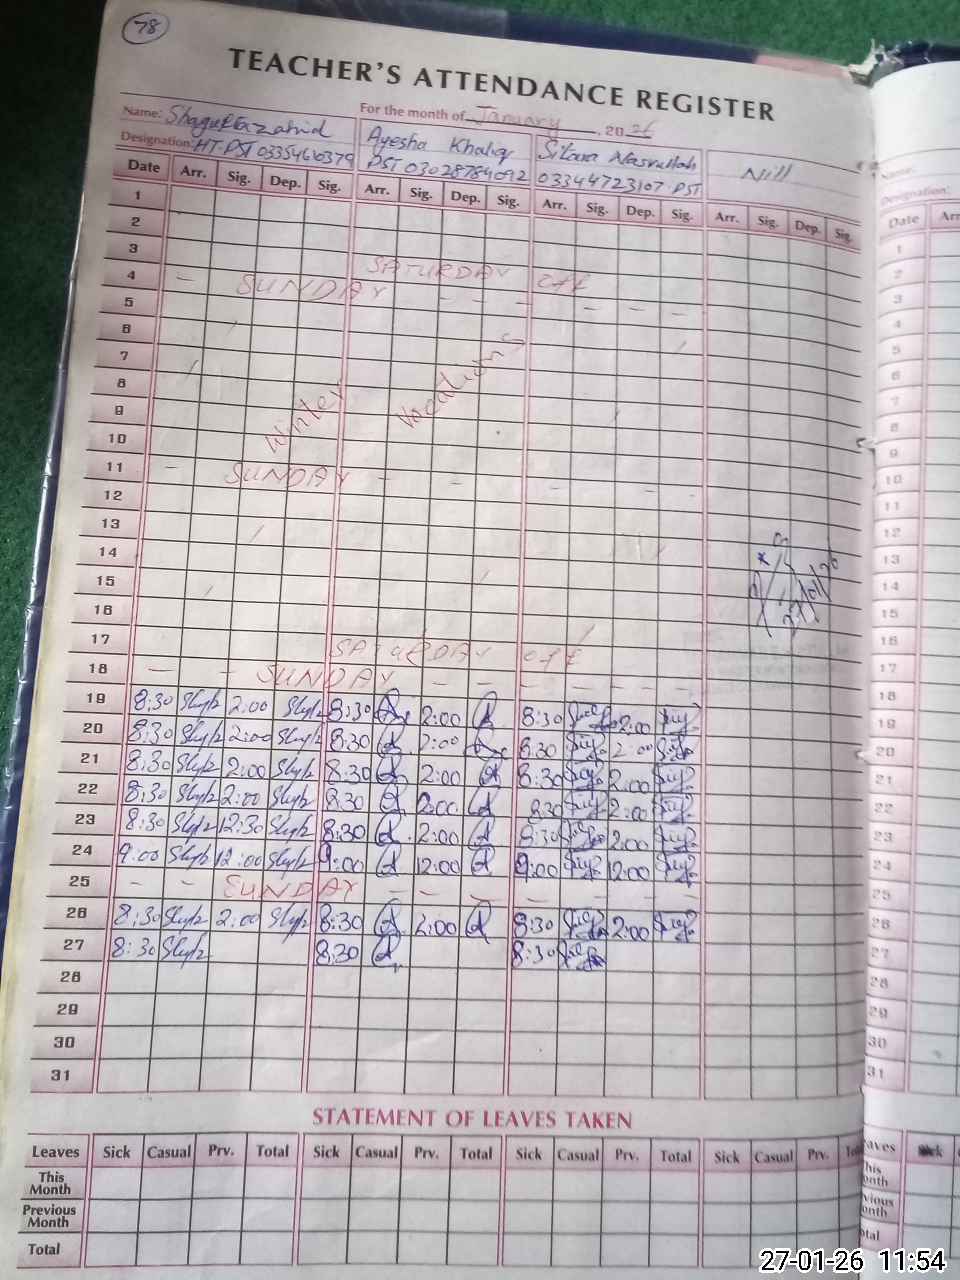 78
TEACHER'S ATTENDANCE REGISTER
For the month of January, 2026
Name: Shagufta zahid
Designation: HT-PST 03354610379
Ayesha Khaliq
PST 03028784092
Sitara Nasrullah
03344723107-PST
Nill
Date Arr. Sig. Dep. Sig. Arr. Sig. Dep. Sig. Arr. Sig. Dep. Sig. Arr. Sig. Dep. Sig.
1
2
3 SATURDAY off
4 - SUNDAY - - - - - -
5
6
7
8
9
Winter Vacations
10
11 - SUNDAY - - - - -
12
13
14
15
16
17 SATURDAY off
18 - - SUNDAY - - - - - - -
19 8:30 2:00 8:30 2:00 8:30 2:00
20 8:30 2:00 8:30 2:00 8:30 2:00
21 8:30 2:00 8:30 2:00 8:30 2:00
22 8:30 2:00 8:30 2:00 8:30 2:00
23 8:30 12:30 8:30 2:00 8:30 2:00
24 9:00 12:00 9:00 12:00 9:00 12:00
25 - - SUNDAY - - - - - - -
26 8:30 2:00 8:30 2:00 8:30 2:00
27 8:30 8:30 8:30
28
29
30
31
STATEMENT OF LEAVES TAKEN
Leaves Sick Casual Prv. Total Sick Casual Prv. Total Sick Casual Prv. Total Sick Casual Prv.
This Month
Previous Month
Total
Name:
Designation:
Date Arr
1
2
3
4
5
6
7
8
9
10
11
12
13
14
15
16
17
18
19
20
21
22
23
24
25
26
27
28
29
30
31
27-01-26 11:54